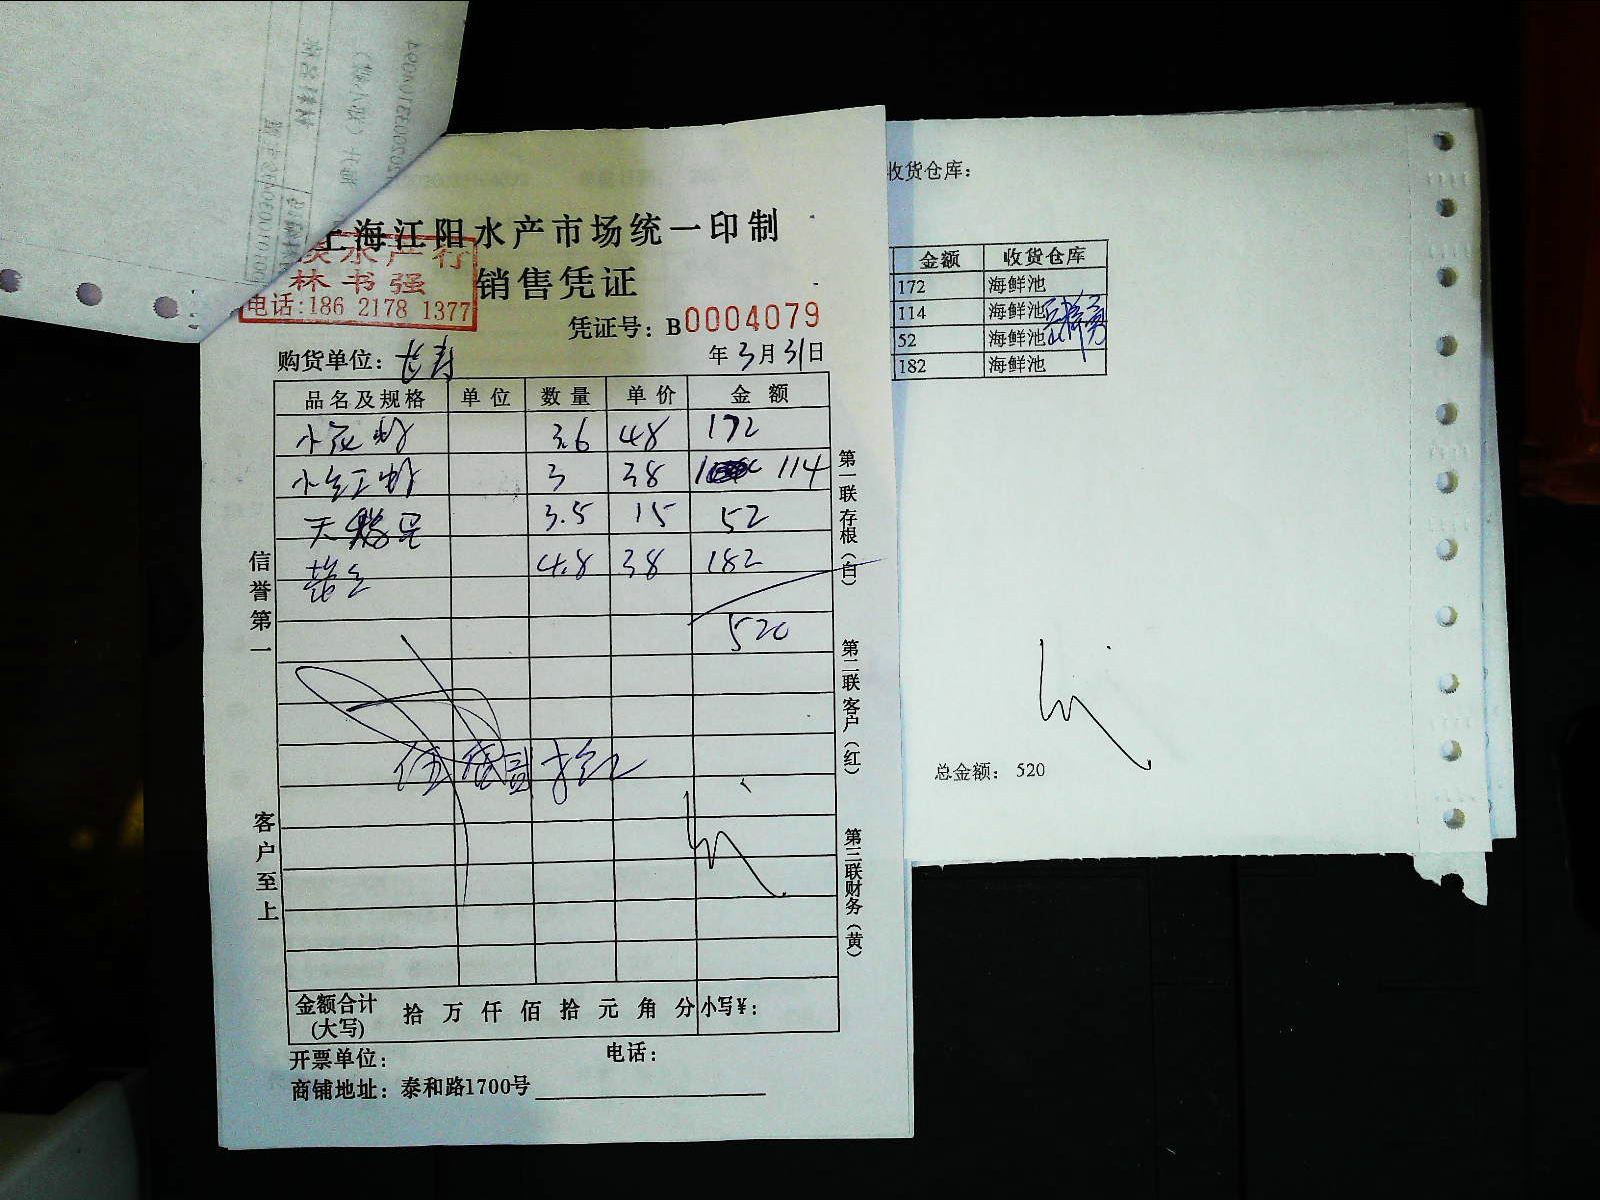 上海江阳水产市场统一印制
销售凭证
水产行
林书强
电话:186 2178 1377
凭证号: B0004079
购货单位: 长寿
年3月31日
品名及规格 单位 数量 单价 金额
小花蚶 3.6 48 172
小红蚶 3 38 114
天鹅蛋 3.5 15 52
4.8 38 182
520
信誉第一
客户至上
第一联存根(白)
第二联客户(红)
第三联财务(黄)
金额合计(大写) 拾万仟佰拾元角分 小写¥:
开票单位: 电话:
商铺地址: 泰和路1700号
收货仓库:
金额 收货仓库
172 海鲜池
114 海鲜池
52 海鲜池
182 海鲜池
总金额: 520